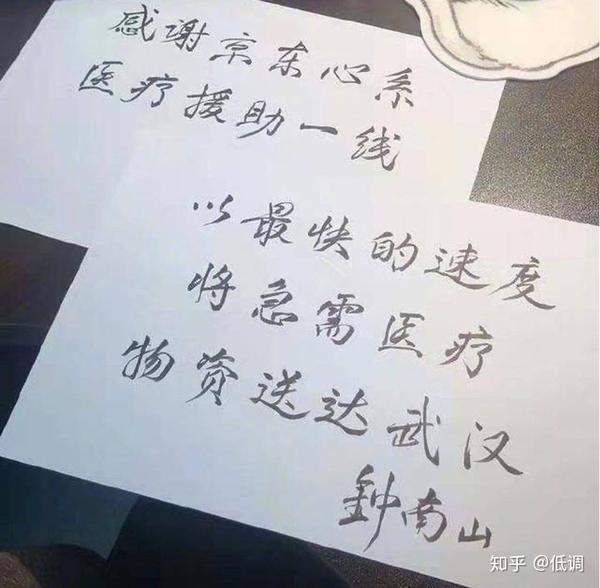 感谢京东心系
医疗援助一线
以最快的速度
将急需医疗
物资送达武汉
鈡南山
知乎 @低调